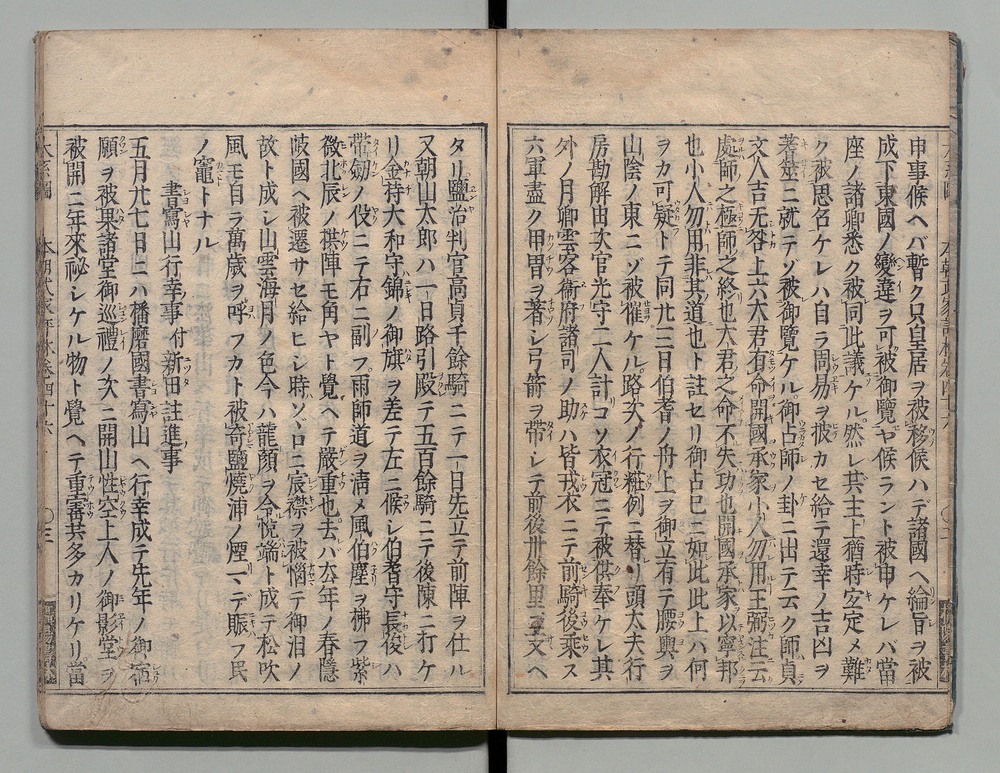 申事候ヘバ暫ク只皇居ヲ被移候ハデ諸國ヘ綸旨ヲ被
成下東國ノ變違ヲ可被御覽ヤ候ラント被申ケレバ當
座ノ諸卿悉ク被同此議ケル然レ共主上猶時宜定メ難
ク被思名ケレハ自ラ周易ヲ被カセ給テ還幸ノ吉凶ヲ
蓍筮ニ就テゾ被御覽ケル御占師ノ卦ニ出テ云ク師貞
丈人吉无咎上六大君有命開國承家小人勿用王弼注云
處師之極師之終也大君之命不失功也開國承家以寧邦
也小人勿用非其道也ト註セリ御占已ニ如此此上ハ何
ヲカ可疑トテ同廾三日伯耆ノ舟上ヲ御立有テ腰輿ヲ
山陰ノ東ニゾ被催ケル路次ノ行粧例ニ替リ頭太夫行
房勘解由次官光守二人計コソ衣冠ニテ被供奉ケレ其
外ノ月卿雲客衞府諸司ノ助ハ皆戎衣ニテ前騎後乘ス
六軍盡ク甲冑ヲ著シ弓箭ヲ帶シテ前後卅餘里支ヘ
タリ鹽冶判官高貞千餘騎ニテ一日先立テ前陣ヲ仕ル
又朝山太郎ハ一日路引殿テ五百餘騎ニテ後陳ニ打ケ
リ金持大和守錦ノ御旗ヲ差テ左ニ候シ伯耆守長後ハ
帶劔ノ伇ニテ右ニ副フ雨師道ヲ淸メ風伯塵ヲ拂フ紫
微北辰ノ拱陣モ角ヤト覺ヘテ嚴重也去ハ去年ノ春隱
岐國ヘ被遷サセ給ヒシ時ソヾロニ宸襟ヲ被惱テ御泪ノ
故ト成シ山雲海月ノ色今ハ龍顏ヲ令悅端ト成テ松吹
風モ自ラ萬歳ヲ呼フカト被奇鹽燒浦ノ煙マデ賑フ民
ノ竈トナル
書寫山行幸事 付 新田註進事
五月廾七日ニハ播磨國書寫山ヘ行幸成テ先年ノ御宿
願ヲ被果諸堂御巡禮ノ次ニ開山性空上人ノ御影堂ヲ
被開ニ年來祕シケル物ト覺ヘテ重寶共多カリケリ當